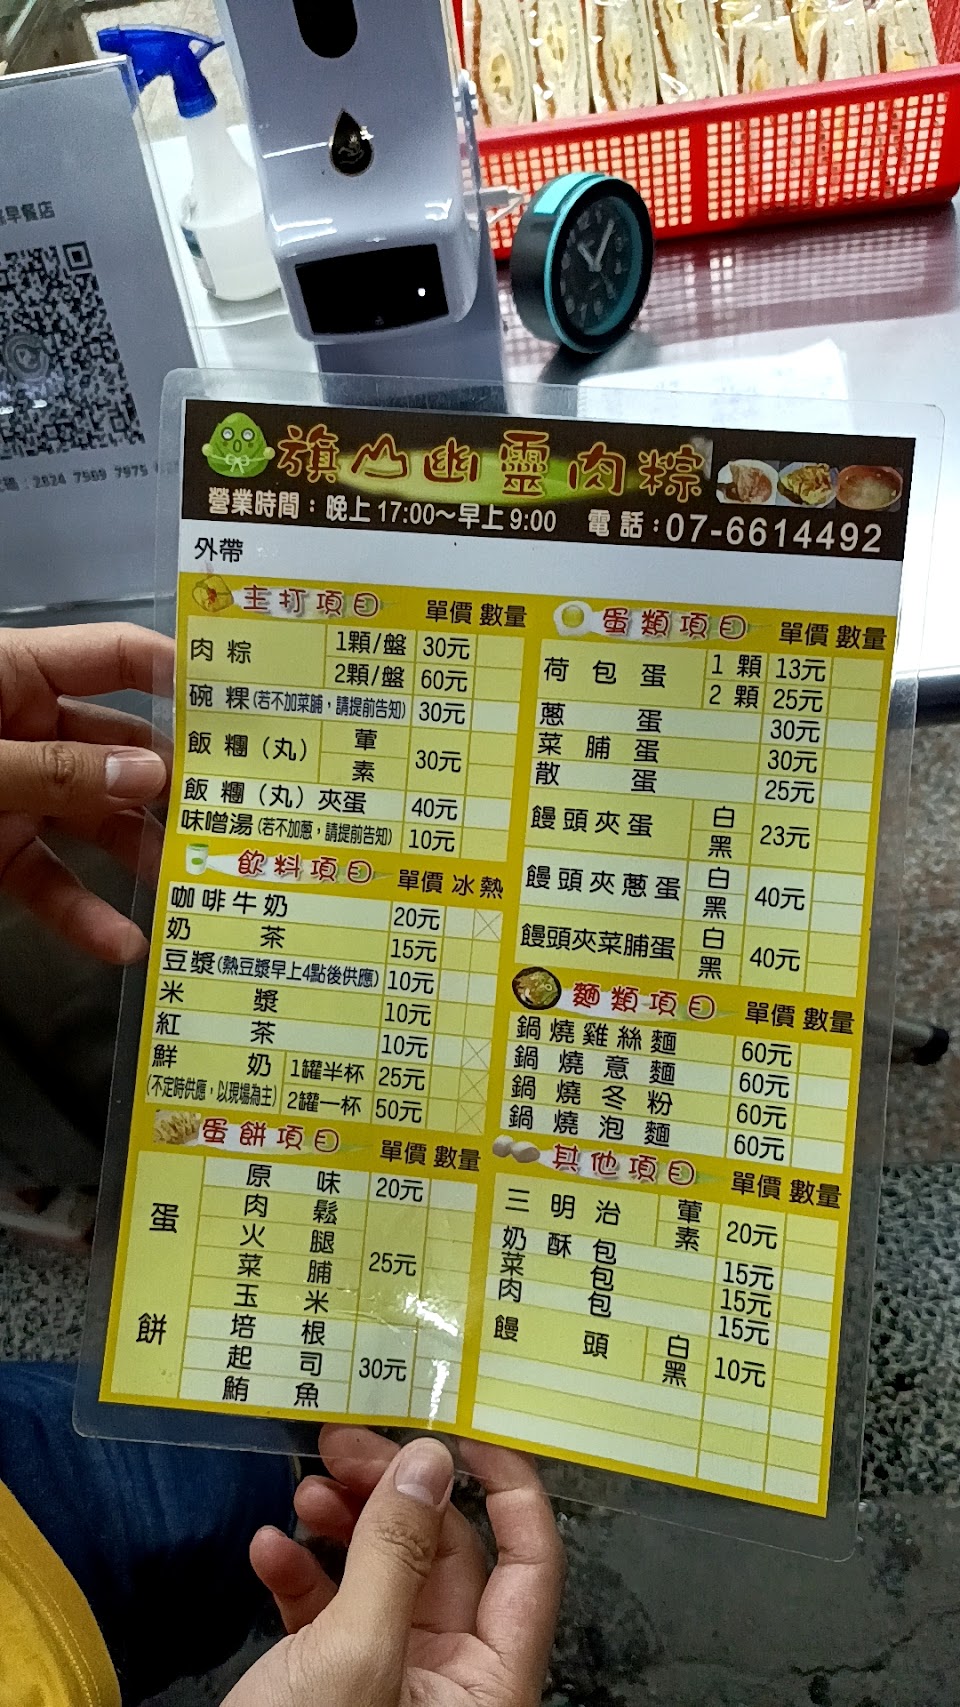 早餐店
2824 7569 7975
旗山幽靈肉粽
營業時間：晚上17:00～早上9:00 電話：07-6614492
外帶
主打項目 單價 數量
肉粽 1顆/盤 30元
2顆/盤 60元
碗粿(若不加菜脯，請提前告知) 30元
飯糰（丸） 葷 素 30元
飯糰（丸）夾蛋 40元
味噌湯(若不加蔥，請提前告知) 10元
飲料項目 單價 冰 熱
咖啡牛奶 20元
奶茶 15元
豆漿(熱豆漿早上4點後供應) 10元
米漿 10元
紅茶 10元
鮮奶 1罐半杯 25元
(不定時供應，以現場為主) 2罐一杯 50元
蛋餅項目 單價 數量
蛋餅
原味 20元
肉鬆
火腿
菜脯 25元
玉米
培根
起司 30元
鮪魚
蛋類項目 單價 數量
荷包蛋 1顆 13元
2顆 25元
蔥蛋 30元
菜脯蛋 30元
散蛋 25元
饅頭夾蛋 白 黑 23元
饅頭夾蔥蛋 白 黑 40元
饅頭夾菜脯蛋 白 黑 40元
麵類項目 單價 數量
鍋燒雞絲麵 60元
鍋燒意麵 60元
鍋燒冬粉 60元
鍋燒泡麵 60元
其他項目 單價 數量
三明治 葷 素 20元
奶酥包 15元
菜包 15元
肉包 15元
饅頭 白 黑 10元